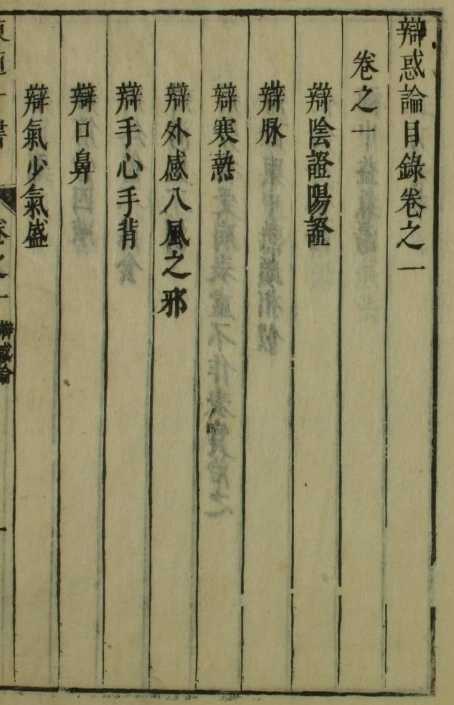 辯惑論目錄卷之一
卷之一
辯陰證陽證
辯脉
辯寒熱
辯外感八風之邪
辯手心手背
辯口鼻
辯氣少氣盛
東垣十書
卷之一
辯惑論
一